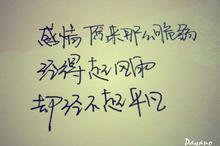 感情原来那么脆弱
经得起风雨
却经不起平凡
Dayano